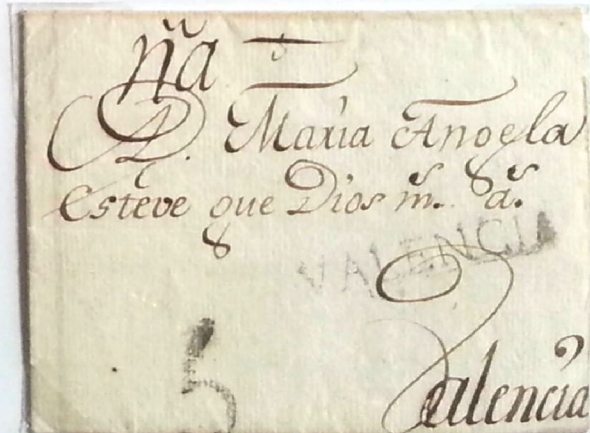 ña
A D. Maria Angela
Esteve que Dios m.s a.s
VALENCIA
5
Valencia